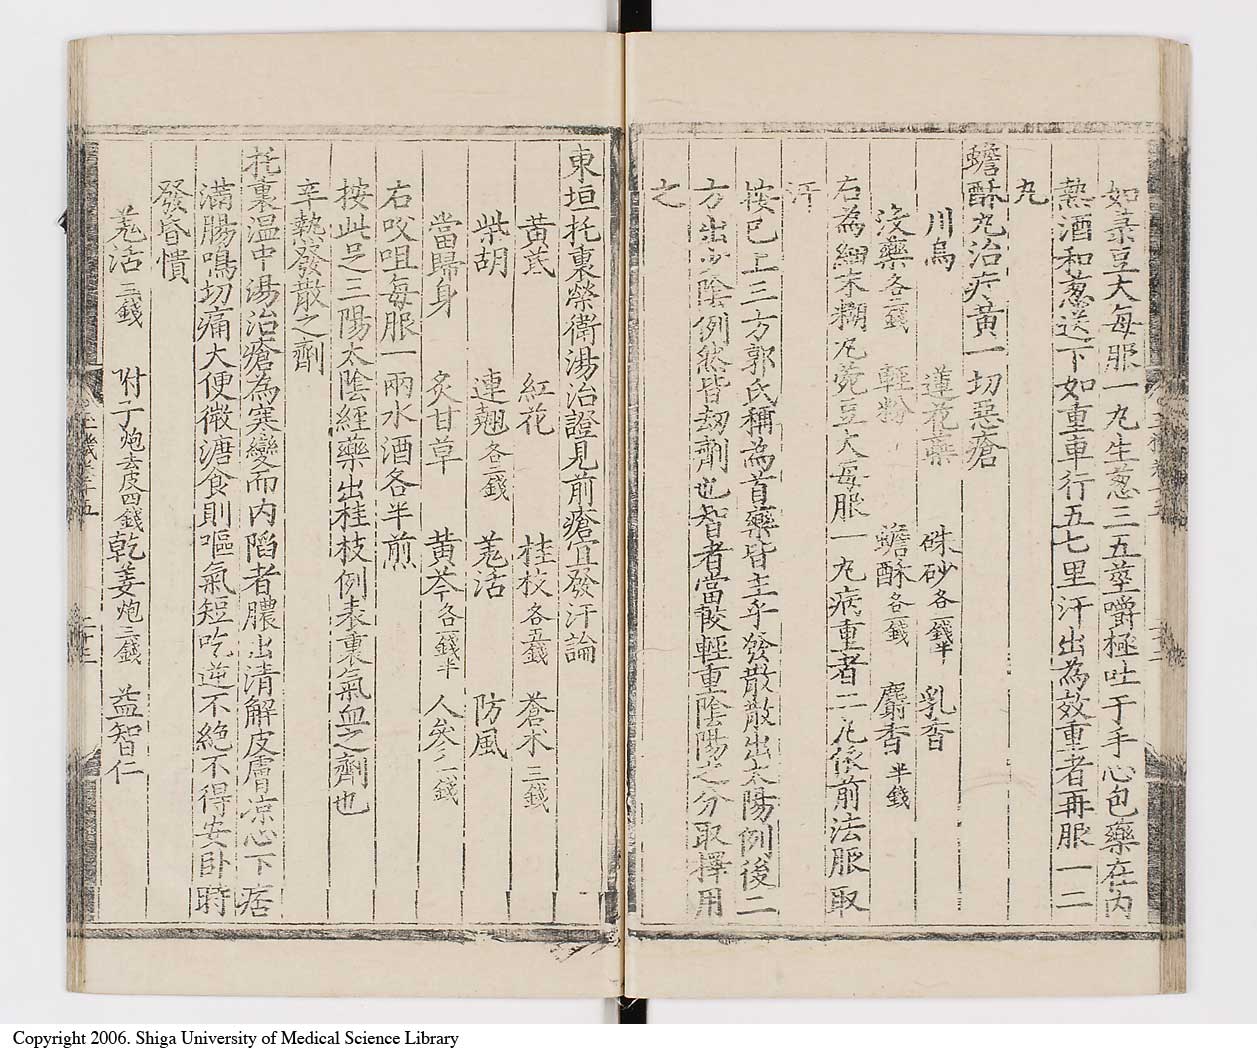 如菉豆大每服一丸生葱三五莖嚼極吐于手心包藥在內
熱酒和葱送下如重車行五七里汗出為效重者再服一二
丸
蟾酥丸治疔黃一切惡瘡
川烏 蓮花蘂 硃砂各一錢半 乳香
沒藥各二錢 輕粉 蟾酥各一錢 麝香半錢
右為細末糊丸菀豆大每服一丸病重者二丸依前法服取
汗
按已上三方郭氏稱為首藥皆主乎發散散出太陽例後二
方出少陰例然皆刼劑也智者當較輕重陰陽之分取擇用
之
東垣托裏榮衛湯治證見前瘡宜發汗論
黃芪 紅花 桂枝各五錢 蒼朮三錢
柴胡 連翹各二錢 羗活 防風
當歸身 炙甘草 黃芩各一錢半 人參一錢
右㕮咀每服一兩水酒各半煎
按此足三陽太陰經藥出桂枝例表裏氣血之劑也
辛熱發散之劑
托裏温中湯治瘡為寒變而内陷者膿出清解皮膚凉心下痞
滿腸鳴切痛大便微溏食則嘔氣短吃逆不絶不得安卧時
發昏憒
羗活三錢 附丁炮去皮四錢 乾姜炮三錢 益智仁
Copyright 2006. Shiga University of Medical Science Library